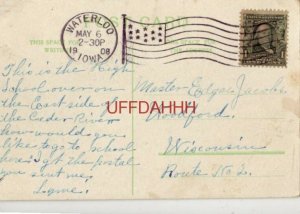 POST CARD
WATERLOO
MAY 6
2-30P
1908
IOWA
This is the High
School over on
the East side of
the Cedar River
how would you
like to go to school
here got the postal
you sent me.
Master Edgar Jacobs
Woodford
Wisconsin
Route No 2.
UFFDAHHH